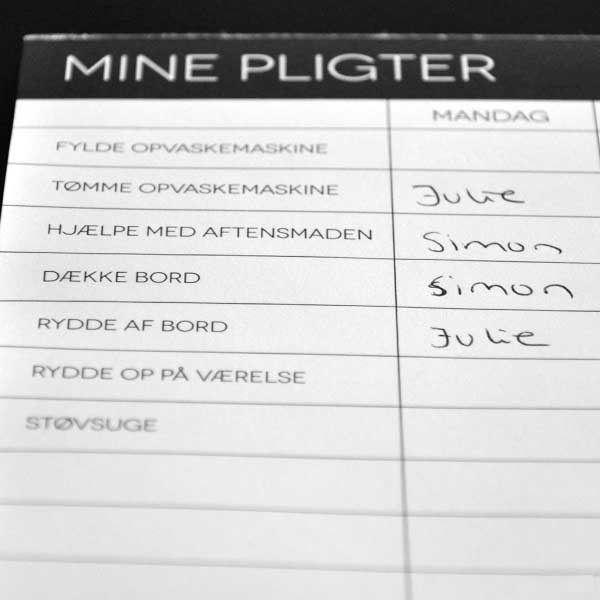 MINE PLIGTER
MANDAG
FYLDE OPVASKEMASKINE
TØMME OPVASKEMASKINE Julie
HJÆLPE MED AFTENSMADEN Simon
DÆKKE BORD Simon
RYDDE AF BORD Julie
RYDDE OP PÅ VÆRELSE
STØVSUGE